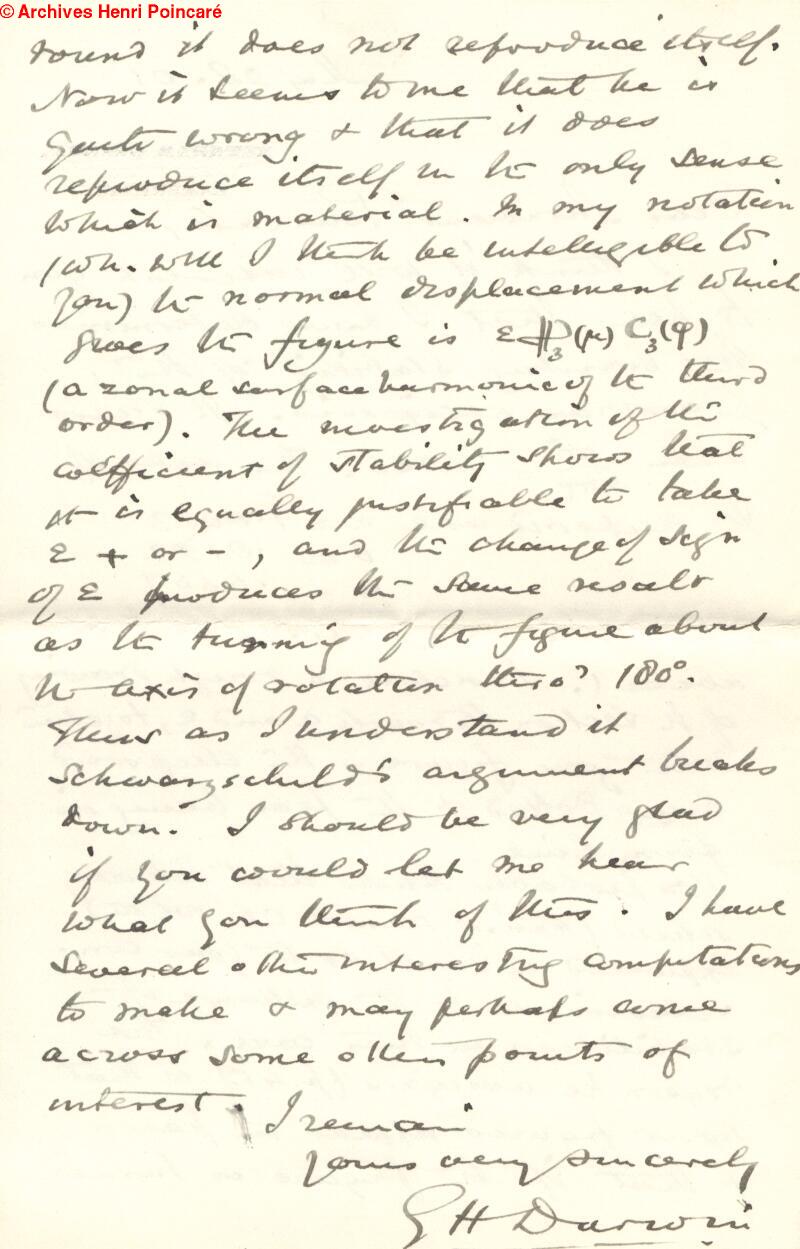 © Archives Henri Poincaré
round it does not reproduce itself.
Now it seems to me that he is
quite wrong & that it does
reproduce itself in the only sense
which is material. In my notation
(wh. will I think be intelligible to
you) the normal displacement which
gives the figure is ε𝔓₃(μ) C₃(φ)
(a zonal surface harmonic of the third
order). The investigation of the
coefficient of stability shows that
it is equally justifiable to take
ε + or -, and the change of sign
of ε produces the same result
as the turning of the figure about
the axis of rotation thro' 180°.
Thus as I understand it
Schwarzschild's argument breaks
down. I should be very glad
if you would let me hear
what you think of this. I have
several other interesting computations
to make & may perhaps come
across some other points of
interest.
I remain
Yours very sincerely
G H Darwin